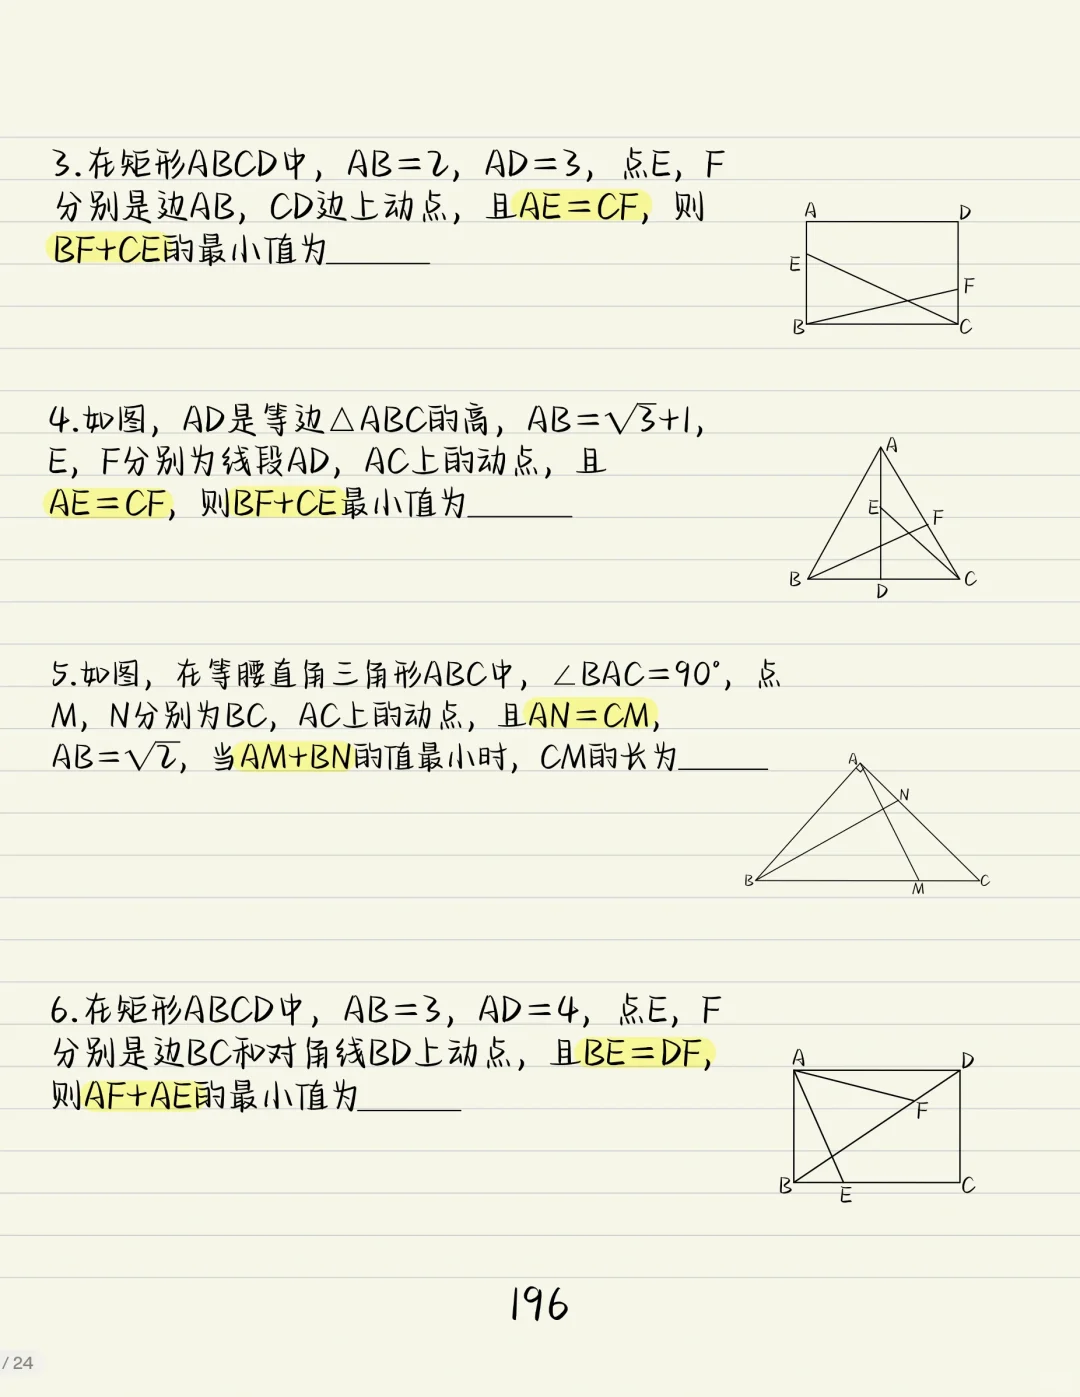 3.在矩形ABCD中，AB=2，AD=3，点E，F
分别是边AB，CD边上动点，且AE=CF，则
BF+CE的最小值为______
A
D
E
F
B
C
4.如图，AD是等边△ABC的高，AB=√3+1，
E，F分别为线段AD，AC上的动点，且
AE=CF，则BF+CE最小值为______
A
E
F
B
D
C
5.如图，在等腰直角三角形ABC中，∠BAC=90°，点
M，N分别为BC，AC上的动点，且AN=CM，
AB=√2，当AM+BN的值最小时，CM的长为______
A
N
B
M
C
6.在矩形ABCD中，AB=3，AD=4，点E，F
分别是边BC和对角线BD上动点，且BE=DF，
则AF+AE的最小值为______
A
D
F
B
E
C
196
/ 24